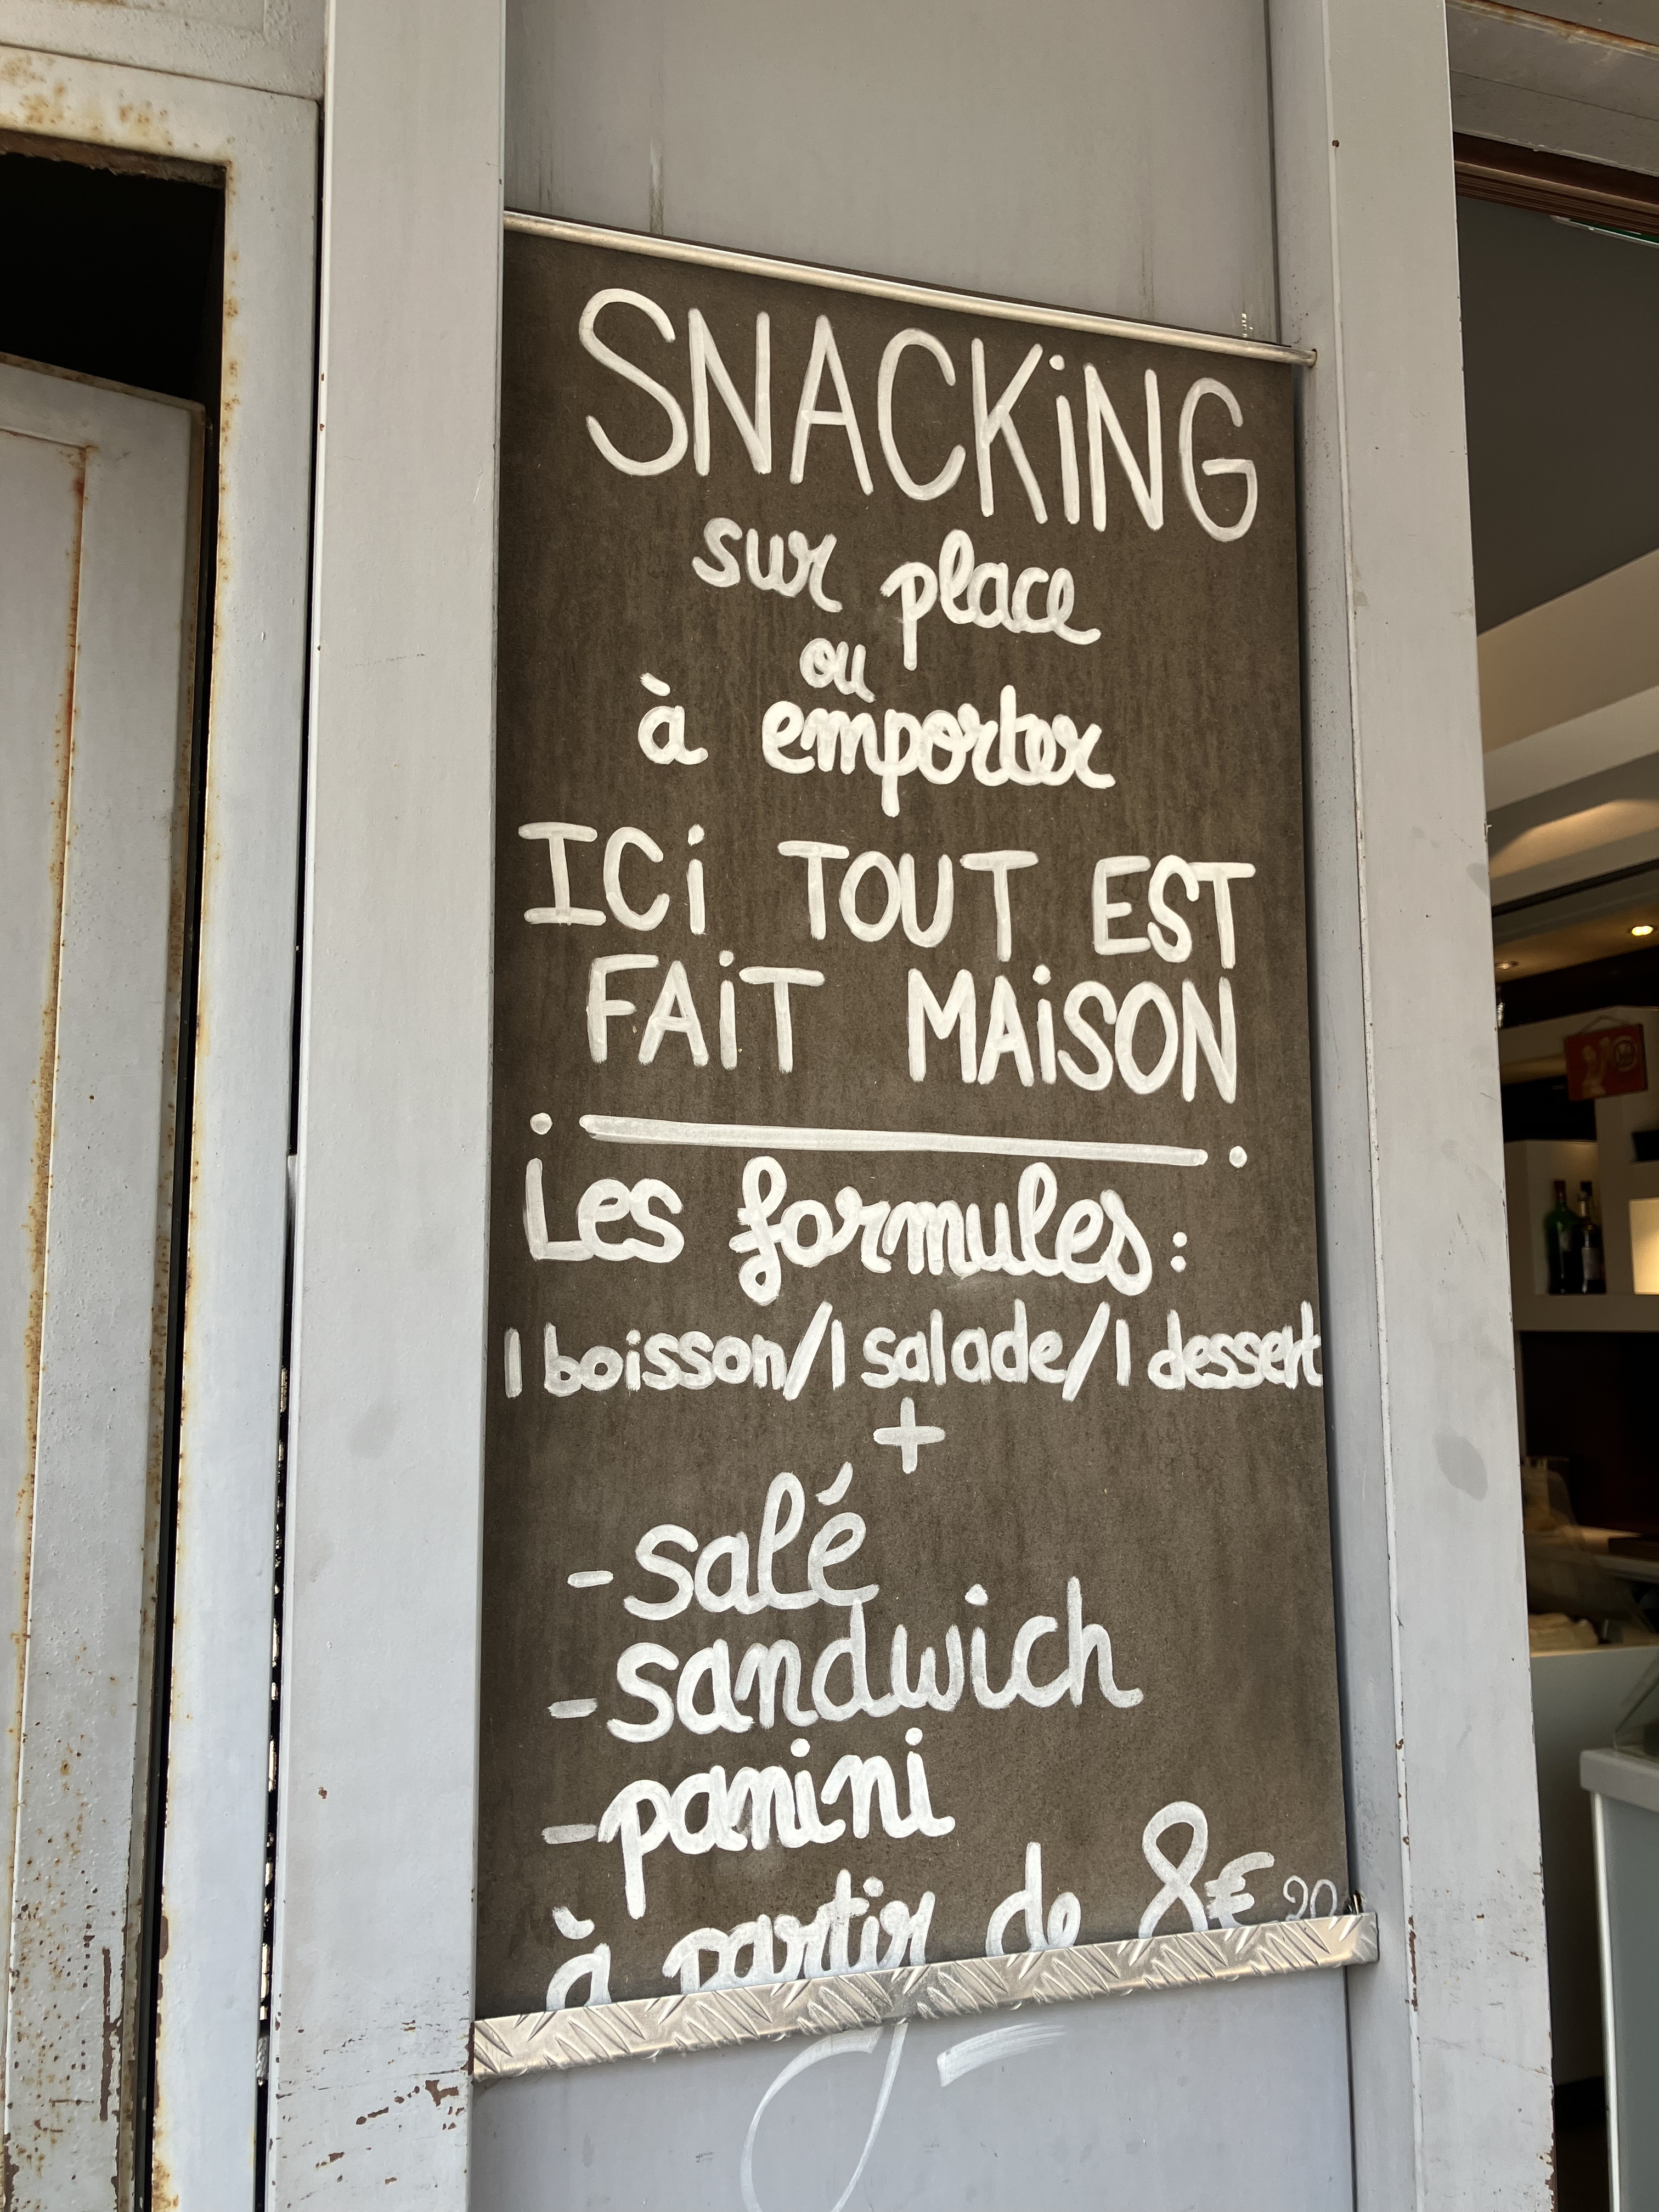 SNACKiNG
sur place
ou
à emporter
ICi TOUT EST
FAiT MAiSON
Les formules :
1 boisson/1 salade/1 dessert
+
- salé
- sandwich
- panini
à partir de 8€90